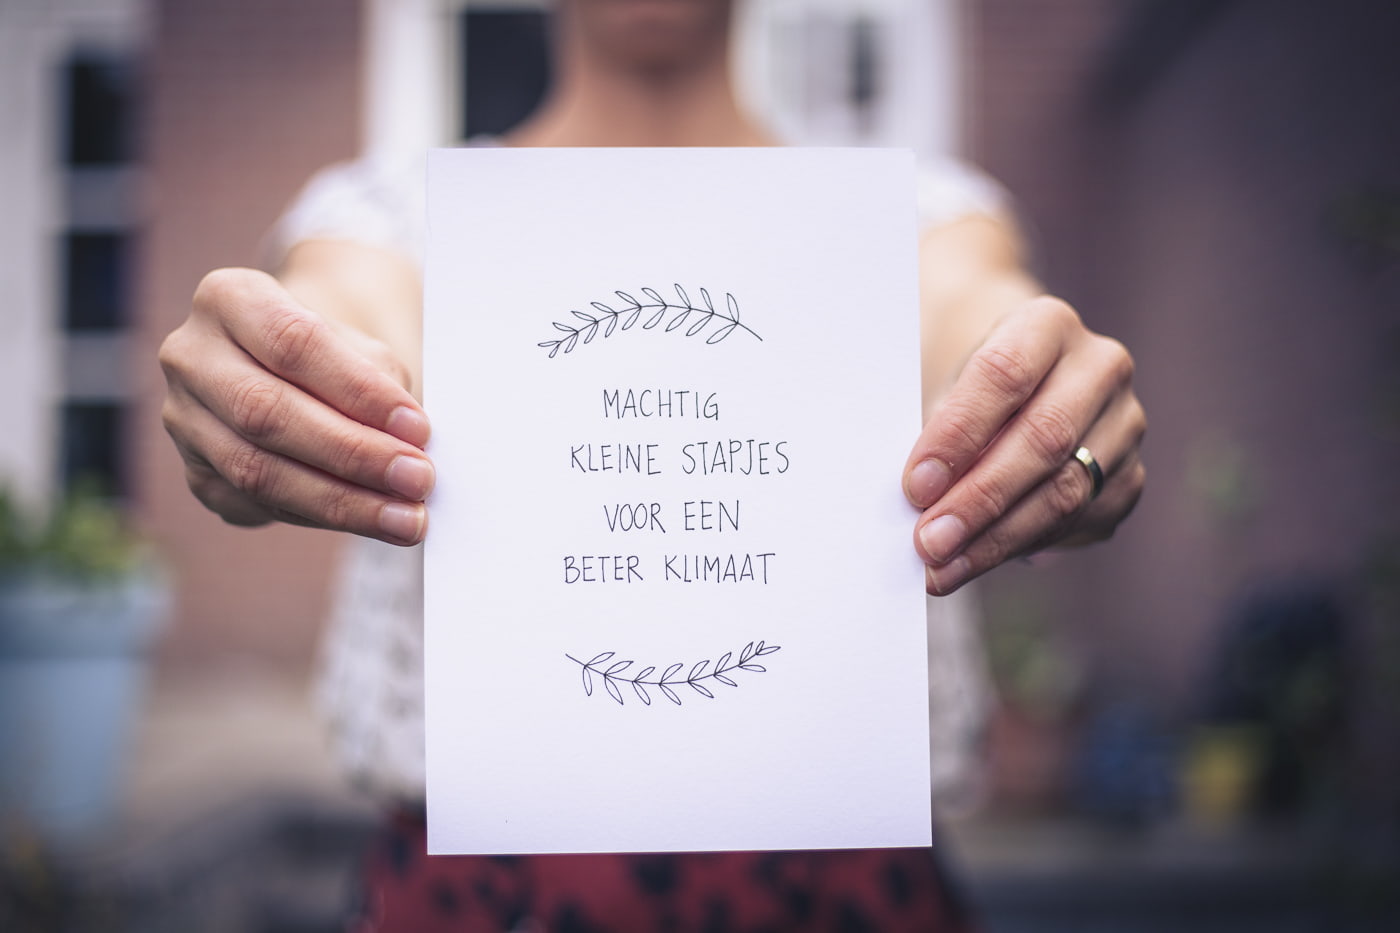 MACHTIG
KLEINE STAPJES
VOOR EEN
BETER KLIMAAT